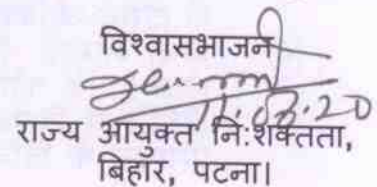 विश्वासभाजन
11.03.20
राज्य आयुक्त नि:शक्तता,
बिहार, पटना।